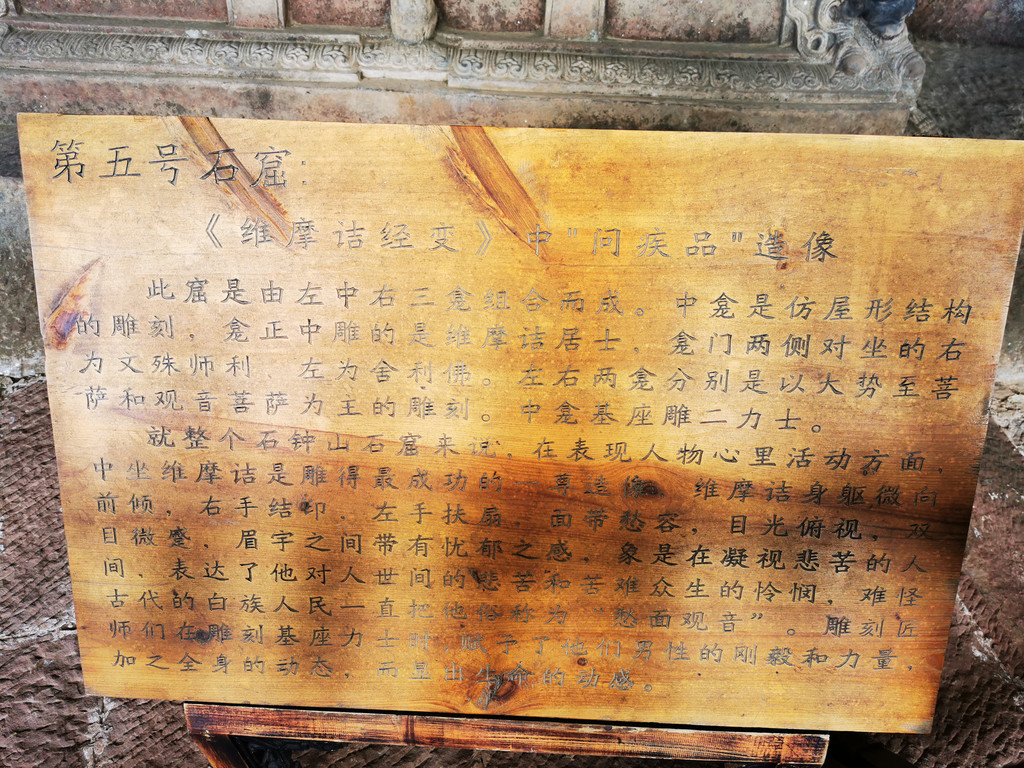 第五号石窟:
《维摩诘经变》中"问疾品"造像
此窟是由左中右三龛组合而成。中龛是仿屋形结构
的雕刻，龛正中雕的是维摩诘居士，龛门两侧对坐的右
为文殊师利、左为舍利佛。左右两龛分别是以大势至菩
萨和观音菩萨为主的雕刻。中龛基座雕二力士。
就整个石钟山石窟来说，在表现人物心里活动方面，
中坐维摩诘是雕得最成功的一尊造像。维摩诘身躯微向
前倾，右手结印，左手扶扇，面带愁容，目光俯视，双
目微蹙，眉宇之间带有忧郁之感，象是在凝视悲苦的人
间，表达了他对人世间的悲苦和苦难众生的怜悯，难怪
古代的白族人民一直把他俗称为“愁面观音”。雕刻匠
师们在雕刻基座力士时，赋予了他们男性的刚毅和力量，
加之全身的动态，而显出生命的动感。